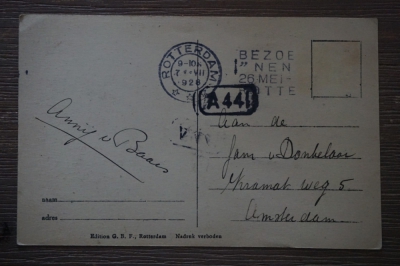 ROTTERDAM
9-10
7 VII
1928
BEZOE
"NEN
26 MEI-
OTTE
A 44
Annij v Baars
Aan de
Fam v Donkelaar
Kramat weg 5
Amsterdam
naam
adres
Edition G. B. F., Rotterdam Nadruk verboden